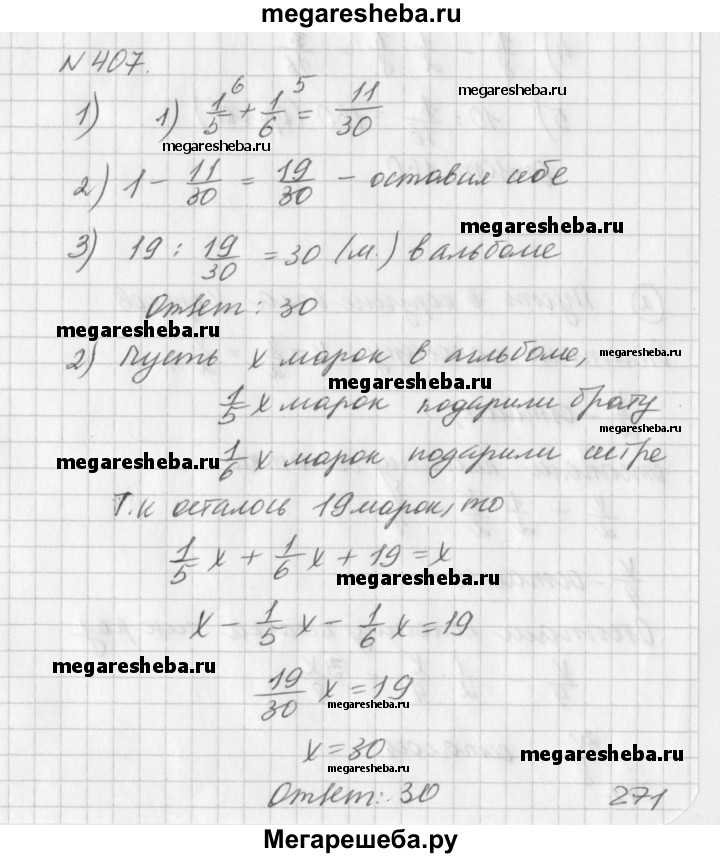 megaresheba.ru
N 407.
1) 1) 1/5 ⁶ + 1/6 ⁵ = 11/30
megaresheba.ru
megaresheba.ru
2) 1 - 11/30 = 19/30 - оставил себе
megaresheba.ru
3) 19 : 19/30 = 30 (м.) в альбоме
Ответ: 30
megaresheba.ru
2) Пусть x марок в альбоме,
megaresheba.ru
megaresheba.ru
1/5 x марок подарили брату
megaresheba.ru
megaresheba.ru
1/6 x марок подарили сестре
Т.к осталось 19 марок, то
1/5 x + 1/6 x + 19 = x
megaresheba.ru
x - 1/5 x - 1/6 x = 19
megaresheba.ru
19/30 x = 19
megaresheba.ru
x = 30
megaresheba.ru
megaresheba.ru
Ответ: 30
271
Мегарешеба.ру